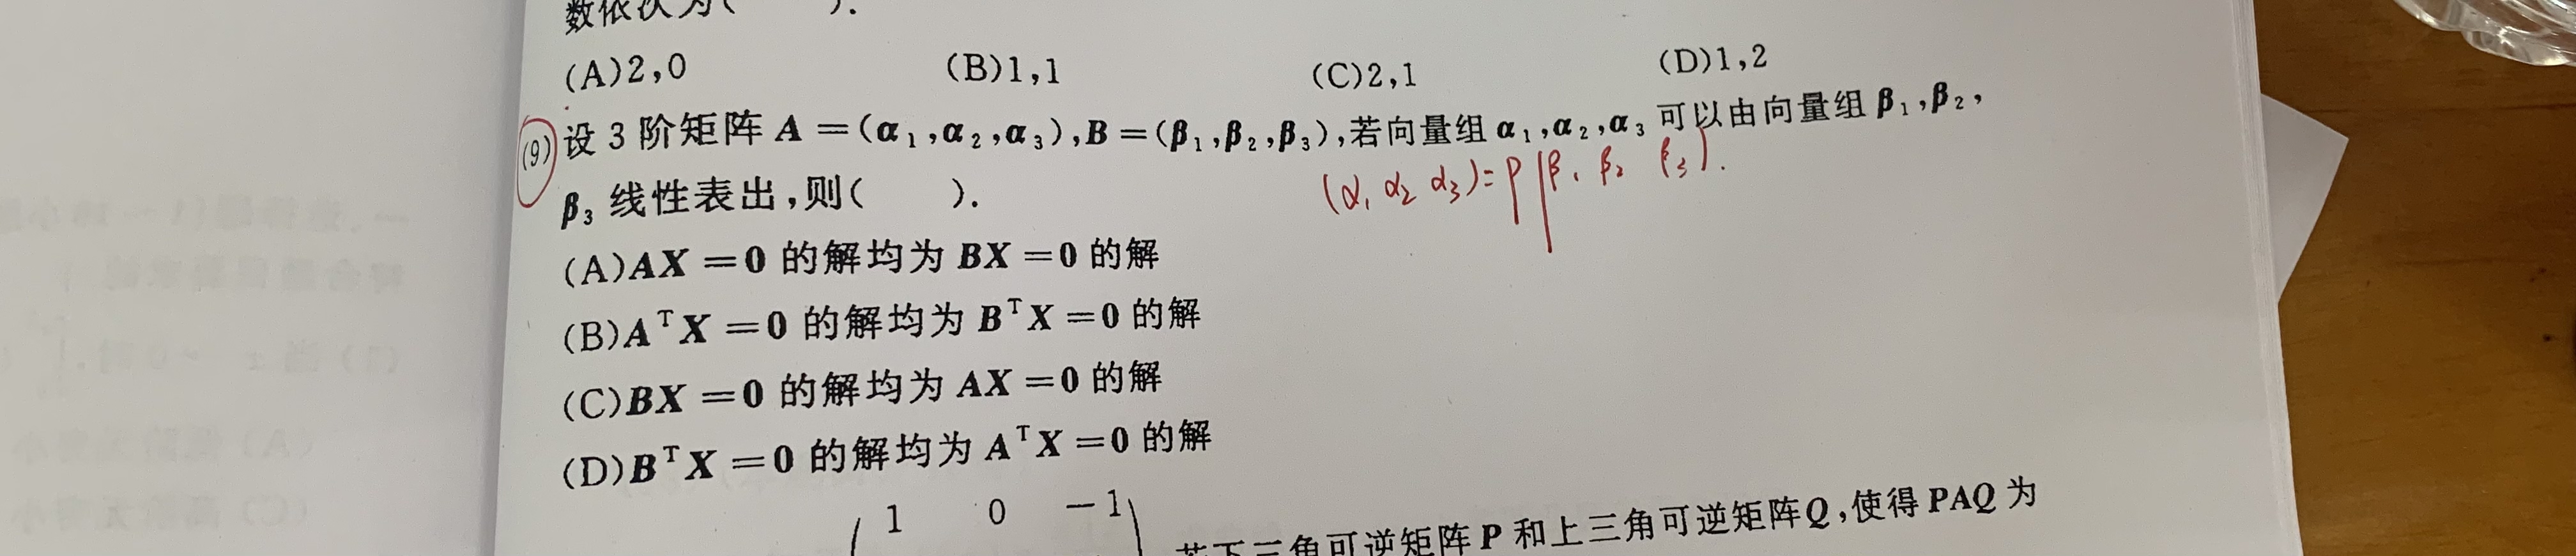 数依次为(    ).
(A)2,0 (B)1,1 (C)2,1 (D)1,2
(9) 设 3 阶矩阵 A =(α₁,α₂,α₃),B =(β₁,β₂,β₃),若向量组 α₁,α₂,α₃ 可以由向量组 β₁,β₂,
β₃ 线性表出,则(    ).
(α₁ α₂ α₃)= P(β₁ β₂ β₃).
(A)AX =0 的解均为 BX =0 的解
(B)AᵀX =0 的解均为 BᵀX =0 的解
(C)BX =0 的解均为 AX =0 的解
(D)BᵀX =0 的解均为 AᵀX =0 的解
1 0 −1
若下三角可逆矩阵 P 和上三角可逆矩阵Q,使得 PAQ 为